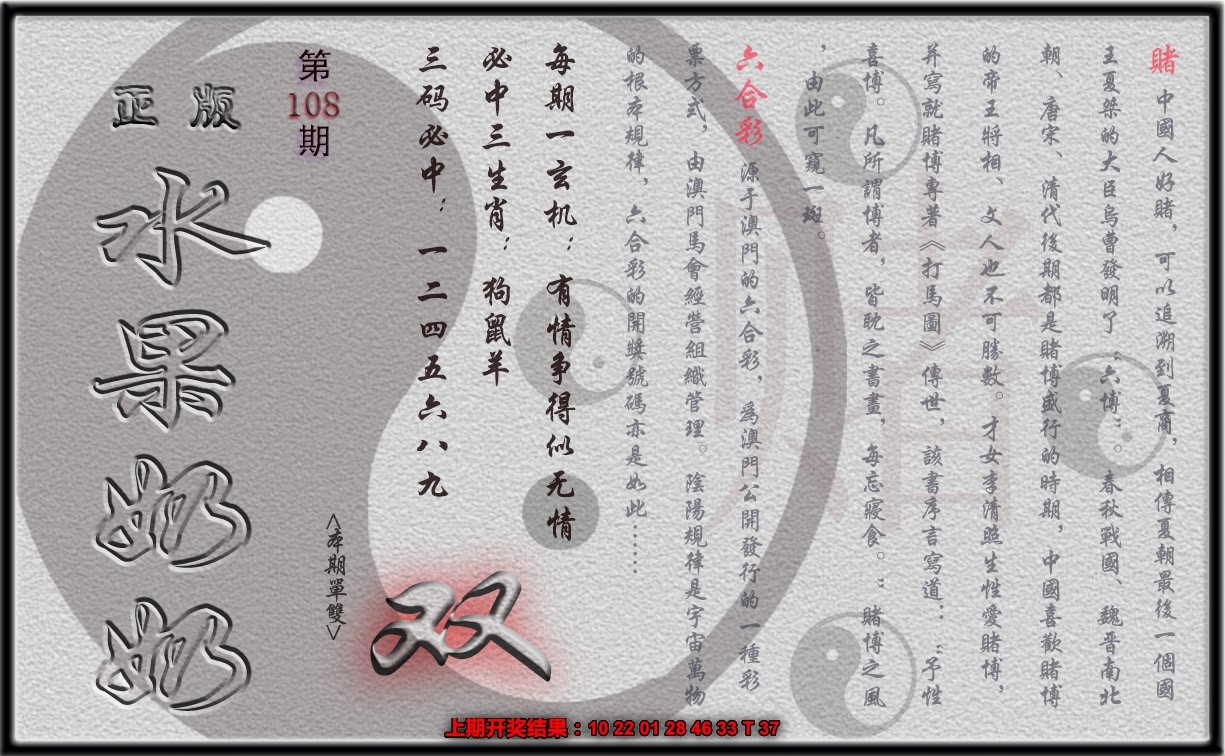 賭 中國人好賭，可以追溯到夏商，相傳夏朝最後一個國
王夏桀的大臣烏曹發明了“六博”。春秋戰國、魏晉南北
朝、唐宋、清代後期都是賭博盛行的時期，中國喜歡賭博
的帝王將相、文人也不可勝數。才女李清照生性愛賭博，
并寫就賭博專著《打馬圖》傳世，該書序言寫道：“予性
喜博。凡所謂博者，皆耽之書畫，每忘寢食。”賭博之風
，由此可窺一斑。
六合彩 源于澳門的六合彩，為澳門公開發行的一種彩
票方式，由澳門馬會經營組織管理。陰陽規律是宇宙萬物
的根本規律，六合彩的開獎號碼亦是如此……
每期一玄机：有情争得似无情
必中三生肖：狗鼠羊
三码必中：一二四五六八九
<本期單雙>
双
第108期
正版
水果奶奶
賭
上期开奖结果：10 22 01 28 46 33 T 37